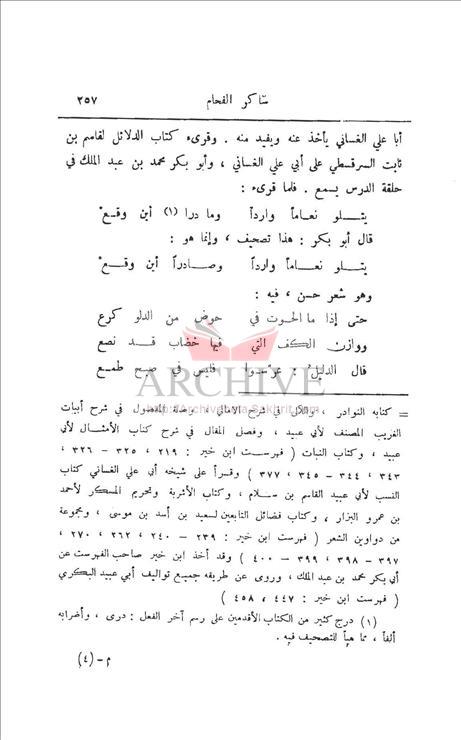 شاكر الفحام ٢٥٧
أبا علي الغساني يأخذ عنه ويفيد منه . وقرىء كتاب الدلائل لقاسم بن
ثابت السرقسطي على أبي علي الغساني ، وأبو بكر محمد بن عبد الملك في
حلقة الدرس يسمع . فلما قرىء :
يتــلو نعــاماً وارداً وما درا (١) أين وقــعْ
قال أبو بكر : هذا تصحيف ، وإنما هو :
يتــلو نعــاماً وارداً وصــادراً أين وقــعْ
وهو شعر حسن ، فيه :
حتى إذا ما الحوت في حوض من الدلو كرع
ووازن الكف التي فيها خضاب قــد نصع
قال الدليلُ : عرّسُــدوا فليس في صبح طمــع
ARCHIVE
http://Archivebeta.Sakhrit.com
= كتابه النوادر ، واللآلي في شرح الأمالي ، وصلة المفصول في شرح أبيات
الغريب المصنف لأبي عبيد ، وفصل المقال في شرح كتاب الأمثــال لأبي
عبيد ، وكتاب النبات ( فهرســت ابن خير : ٢١٩ ، ٣٢٥ – ٣٢٦ ،
٣٤٣ ، ٣٤٤ – ٣٤٥ ، ٣٧٧ ) وقــرأ على شيخه أبي علي الغساني كتاب
النسب لأبي عبيد القاسم بن ســلام ، وكتاب الأشربة وتحريم المسكر لأحمد
بن عمرو البزار ، وكتاب فضائل التابعين لسعيد بن أسد بن موسى ، ومجموعة
من دواوين الشعر ( فهرست ابن خير : ٢٣٩ – ٢٤٠ ، ٢٦٢ ، ٢٧٠ ،
٣٩٧ – ٣٩٨ ، ٣٩٩ – ٤٠٠ ) وقد أخذ ابن خير صاحب الفهرست عن
أبي بكر محمد بن عبد الملك ، وروى عن طريقه جميــع تواليف أبي عبيد البكري
( فهرست ابن خير : ٤٤٧ ، ٤٥٨ )
(١) درج كثير من الكتاب الأقدمين على رسم آخر الفعل : درى ، وأضرابه
ألفاً ، مما هيأ للتصحيف فيه .
م – (٤)